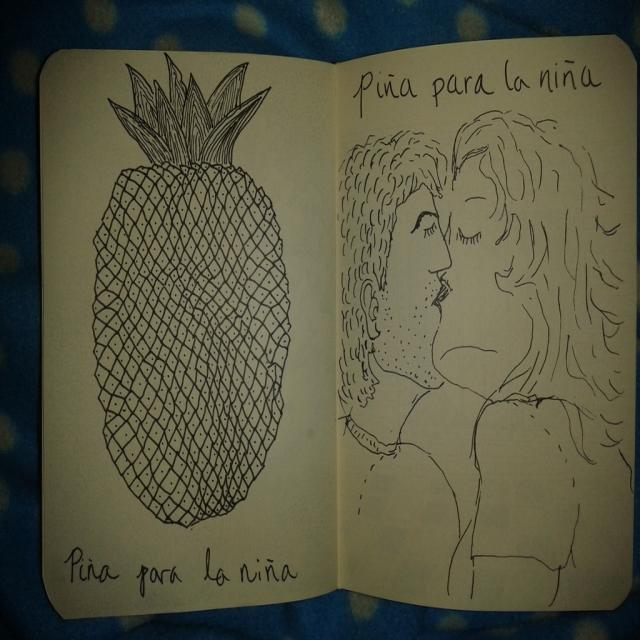 Piña para la niña
piña para la niña